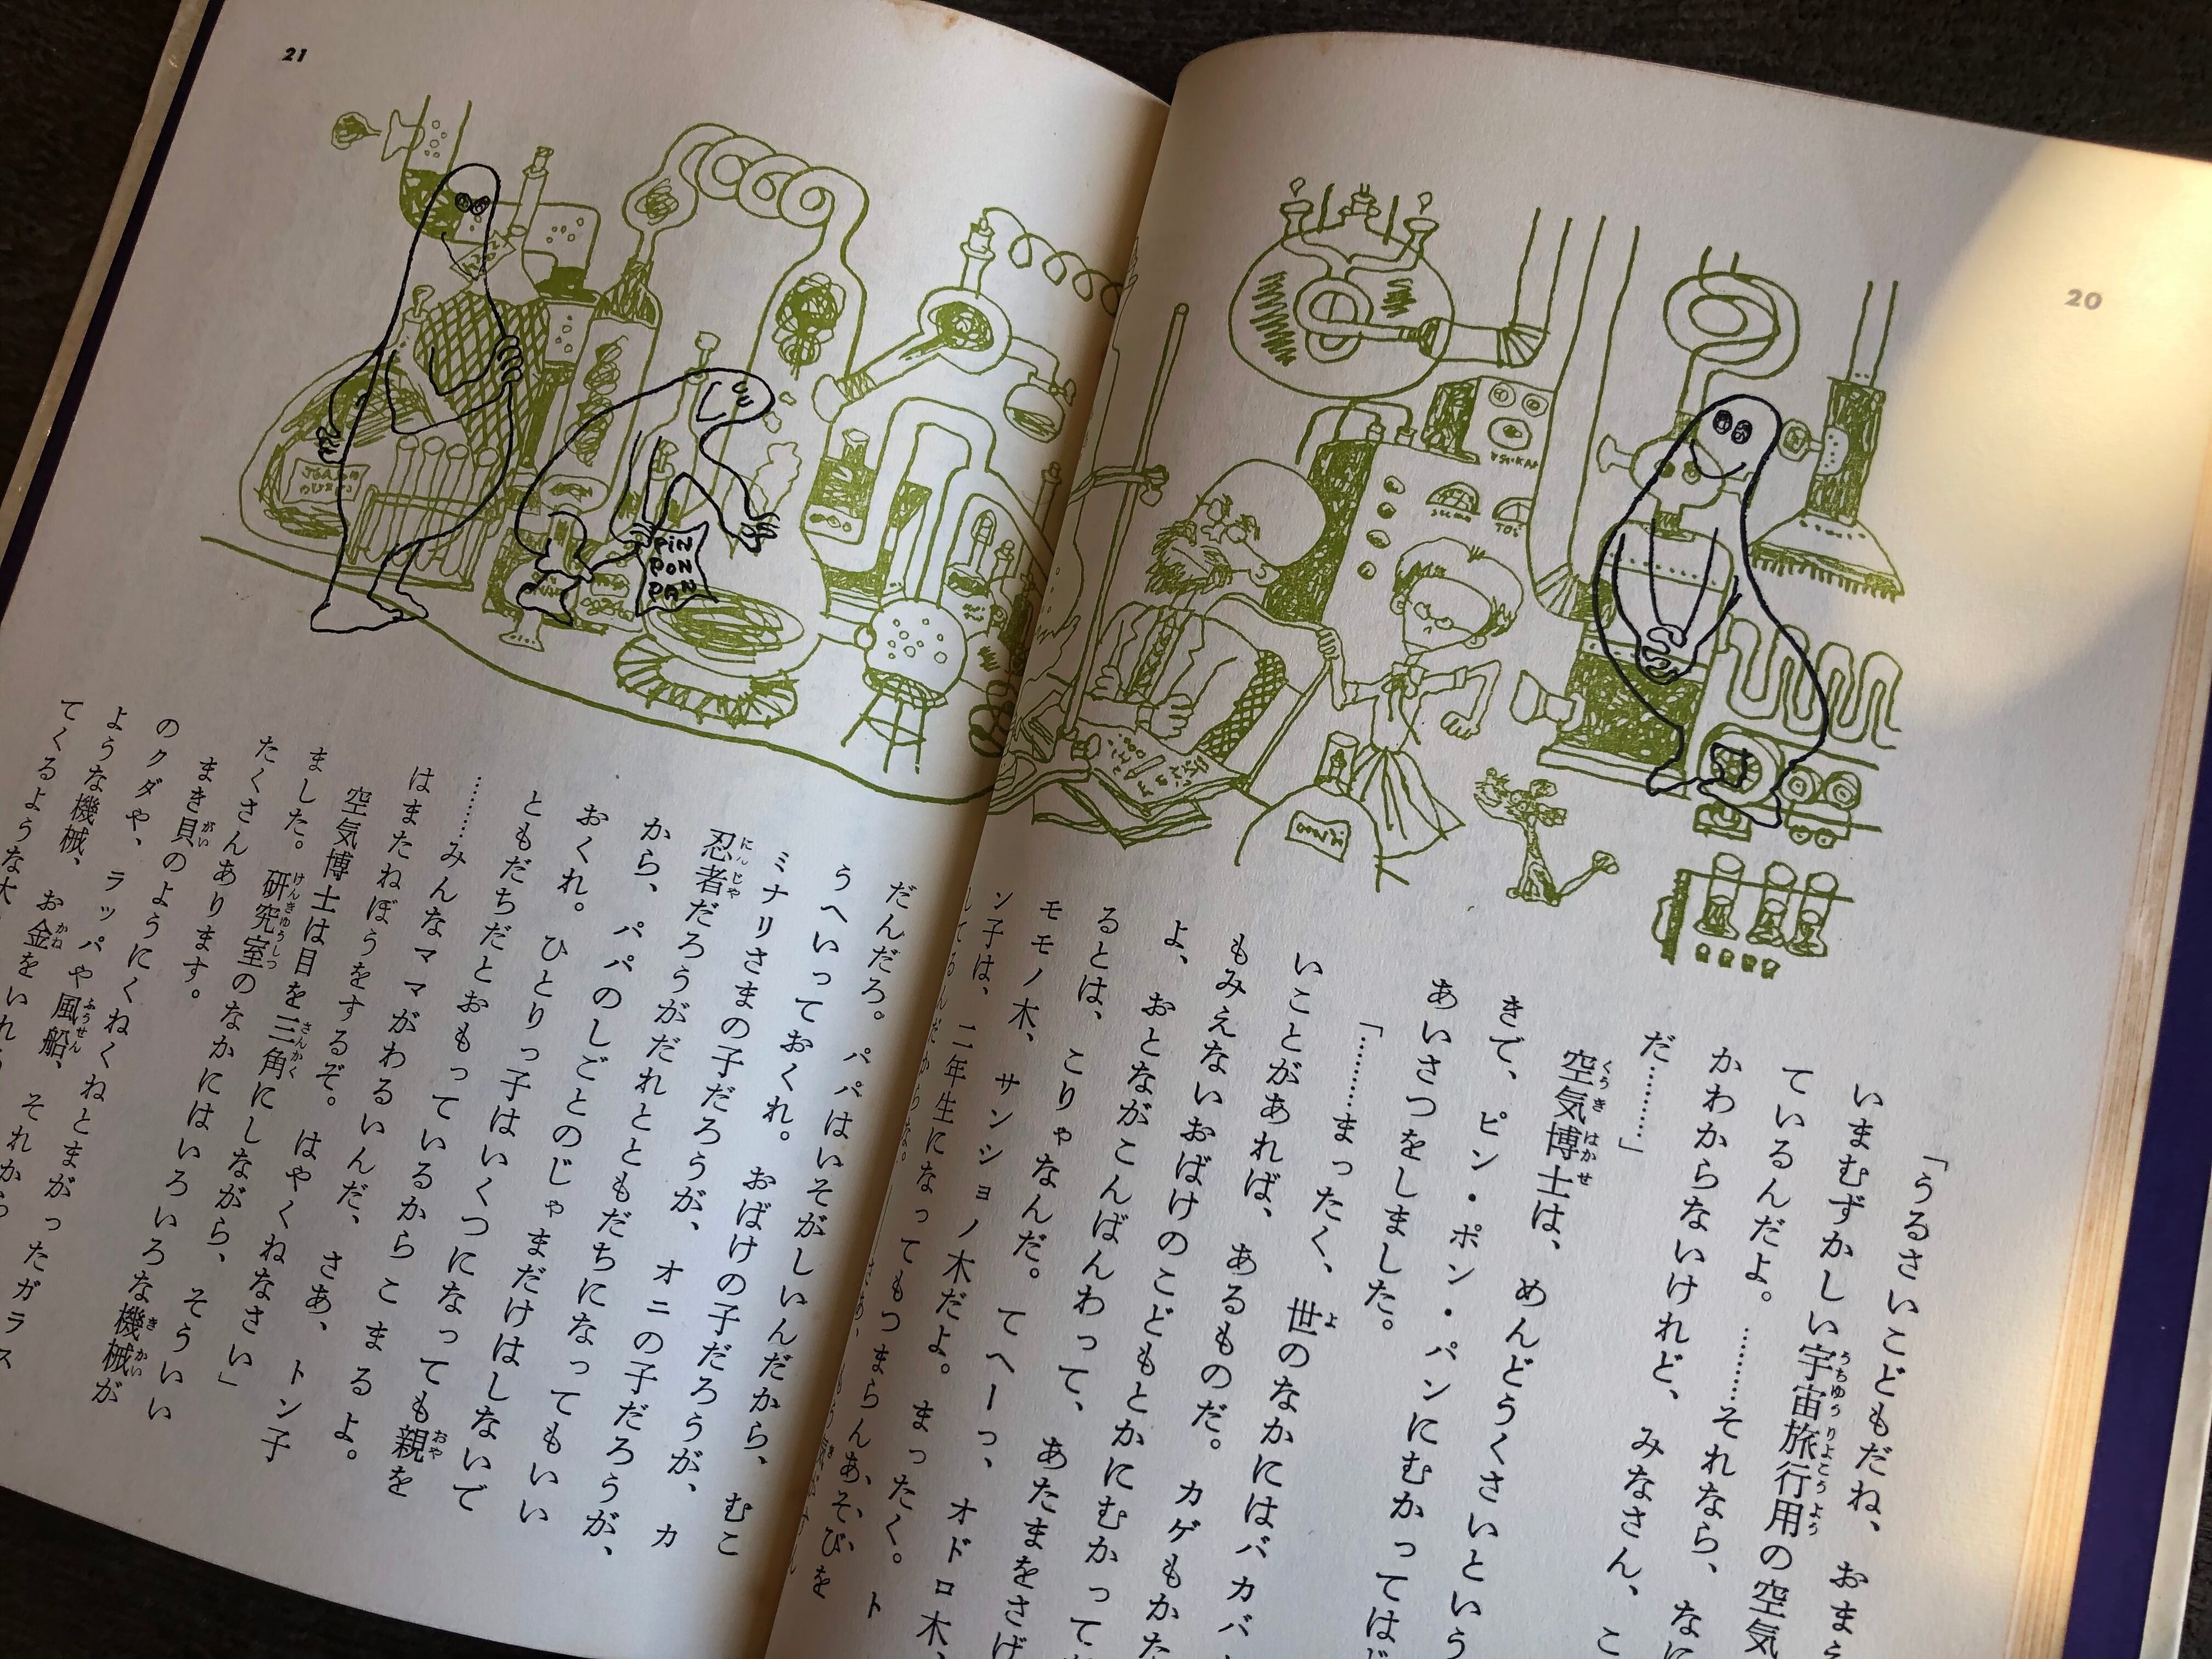 20
「うるさいこどもだね、おまえ
いまむずかしい宇宙旅行用の空気
ているんだよ。………それなら、なに
かわからないけれど、みなさん、こ
だ………」
空気博士は、めんどうくさいという
きで、ピン・ポン・パンにむかってはじ
あいさつをしました。
「………まったく、世のなかにはバカバ
いことがあれば、あるものだ。カゲもかた
もみえないおばけのこどもとかにむかって
よ、おとながこんばんわって、あたまをさげ
るとは、こりゃなんだ。てへーっ、オドロ木、
モモノ木、サンショノ木だよ。まったく。ト
ン子は、二年生になってもつまらんあ、そ、び、を
21
だんだろ。パパはいそがしいんだから、むこ
うへいっておくれ。おばけの子だろうが、カ
ミナリさまの子だろうが、オニの子だろうが、
忍者だろうがだれとともだちになってもいい
から、パパのしごとのじゃまだけはしないで
おくれ。ひとりっ子はいくつになっても親を
ともだちだとおもっているからこまるよ。
………みんなママがわるいんだ、さあ、トン子
はまたねぼうをするぞ。はやくねなさい」
空気博士は目を三角にしながら、そういい
ました。研究室のなかにはいろいろな機械が
たくさんあります。
まき貝のようにくねくねとまがったガラス
のクダや、ラッパや風船、それから
ような機械、お金をいれ
てくるような
PiN
PON
PAN